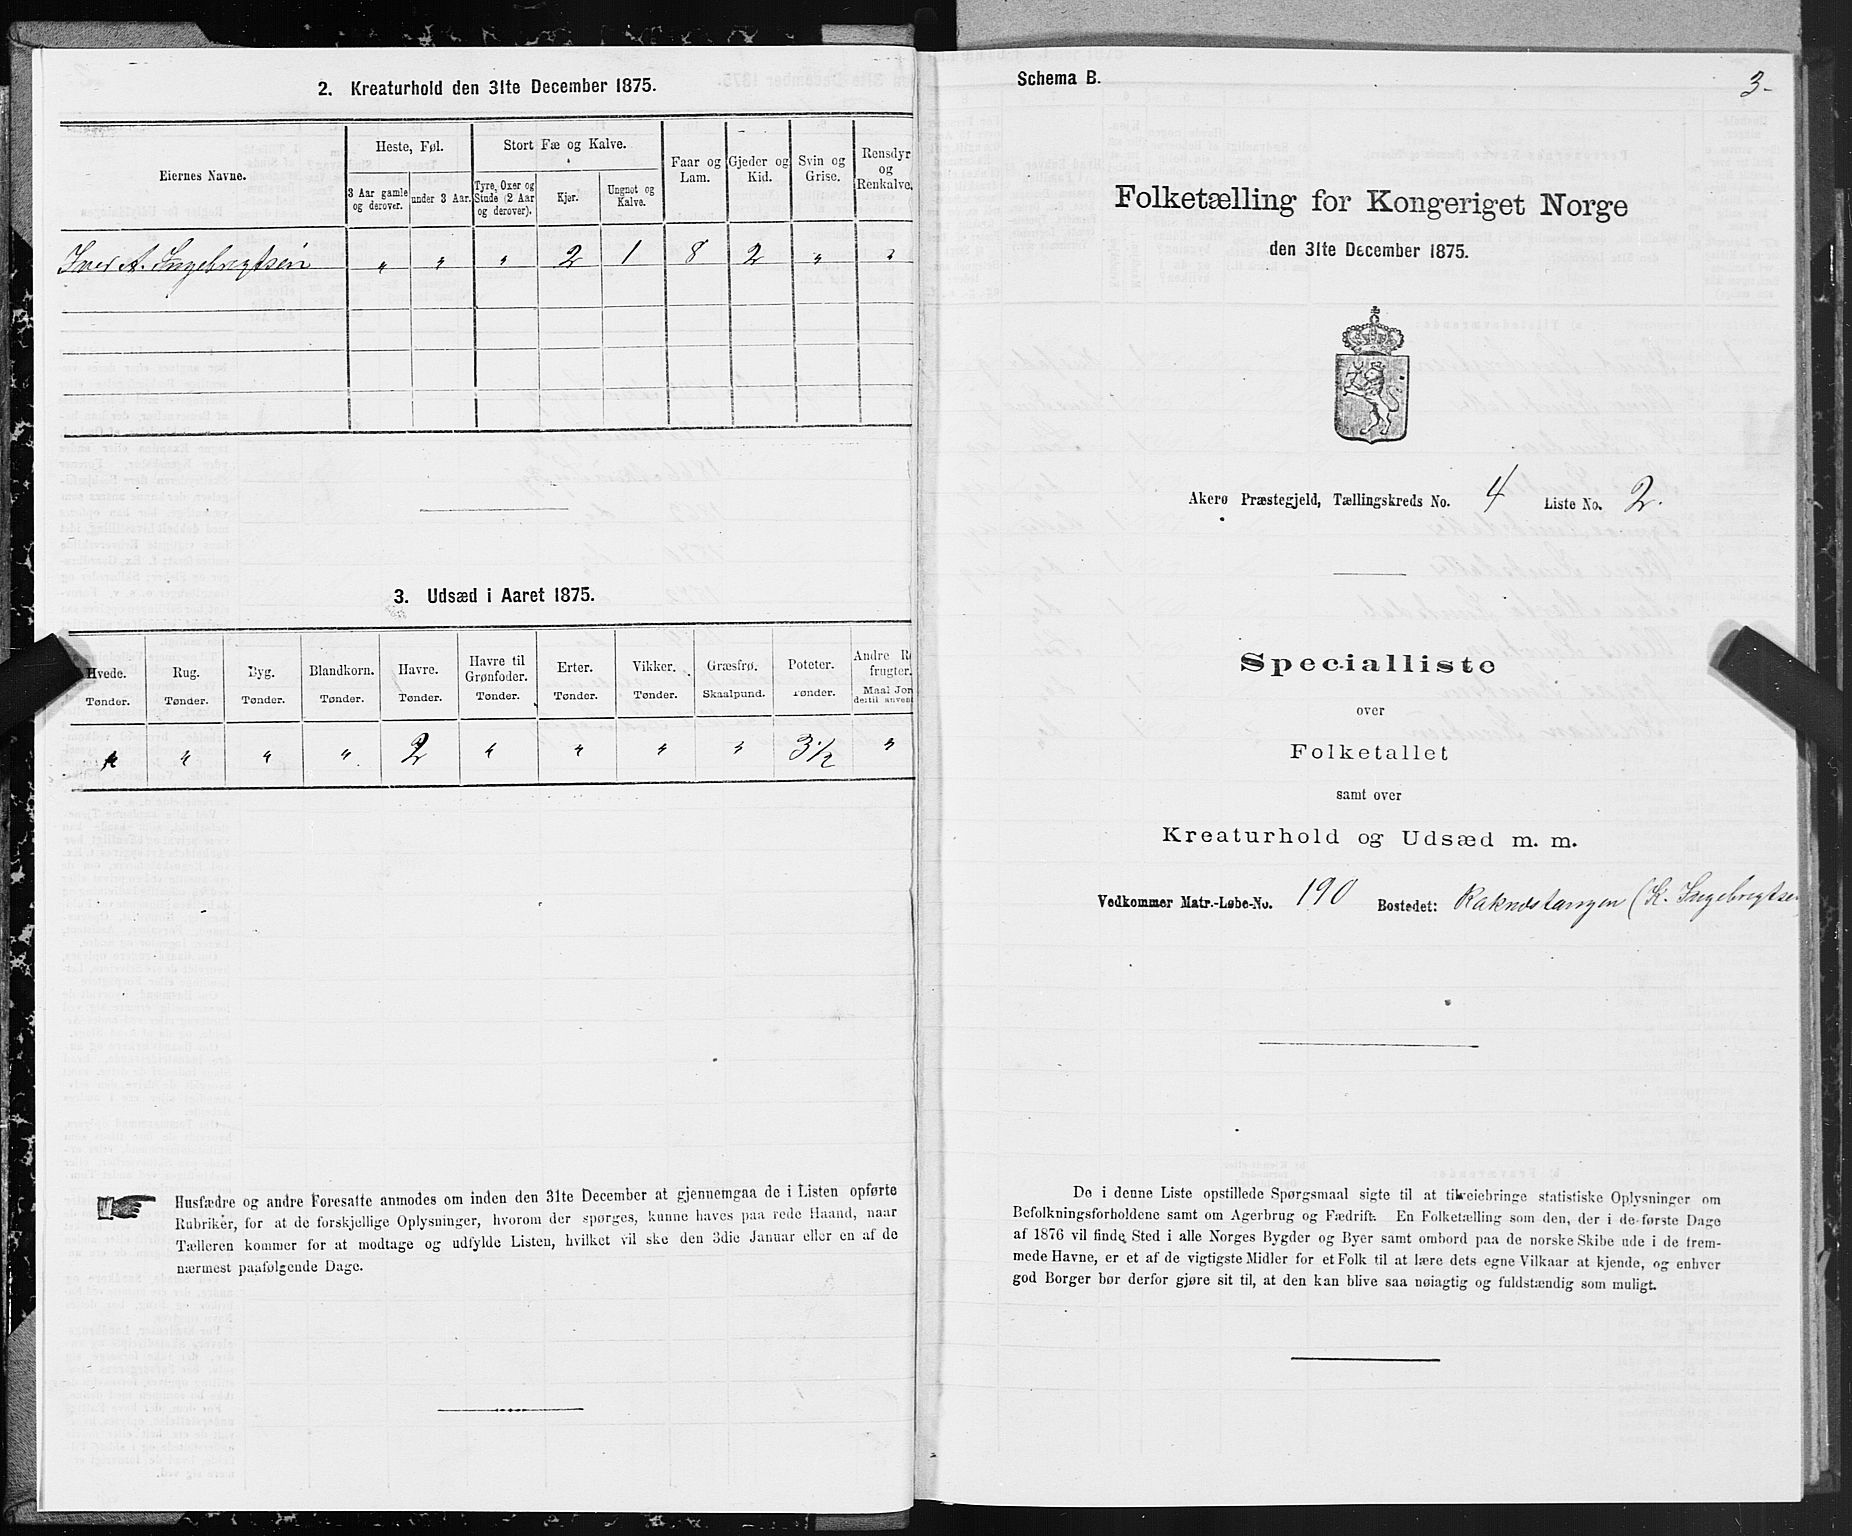 2. Kreaturhold den 31te December 1875.
Eiernes Navne.
Heste, Føl.
Stort Fæ og Kalve.
Faar og Lam.
Gjeder og Kid.
Svin og Grise.
Rensdyr og Renkalve.
3 Aar gamle og derover.
under 3 Aar.
Tyre, Oxer og Stude (2 Aar og derover).
Kjør.
Ungnøt og Kalve.
Iver A. Ingebregtsen " " " 2 1 8 2 " "
3. Udsæd i Aaret 1875.
Hvede. Rug. Byg. Blandkorn. Havre. Havre til Grønfoder. Erter. Vikker. Græsfrø. Poteter. Andre R
frugter.
Tønder. Tønder. Tønder. Tønder. Tønder. Tønder. Tønder. Tønder. Skaalpund. Tønder. Maal Jor
dertil anven
" " " " 2 " " " " 3½ "
Husfædre og andre Foresatte anmodes om inden den 31te December at gjennemgaa de i Listen opførte
Rubriker, for at de forskjellige Oplysninger, hvorom der spørges, kunne haves paa rede Haand, naar
Tælleren kommer for at modtage og udfylde Listen, hvilket vil ske den 3die Januar eller en af de
nærmest paafølgende Dage.
Schema B.
3.
Folketælling for Kongeriget Norge
den 31te December 1875.
Akerø Præstegjeld, Tællingskreds No. 4 Liste No. 2.
Specialliste
over
Folketallet
samt over
Kreaturhold og Udsæd m. m.
Vedkommer Matr.-Løbe-No. 190 Bostedet: Raknestangen (K. Ingebregtsen
De i denne Liste opstillede Spørgsmaal sigte til at tilveiebringe statistiske Oplysninger om
Befolkningsforholdene samt om Agerbrug og Fædrift. En Folketælling som den, der i de første Dage
af 1876 vil finde Sted i alle Norges Bygder og Byer samt ombord paa de norske Skibe ude i de frem-
mede Havne, er et af de vigtigste Midler for et Folk til at lære dets egne Vilkaar at kjende, og enhver
god Borger bør derfor gjøre sit til, at den kan blive saa nøiagtig og fuldstændig som muligt.